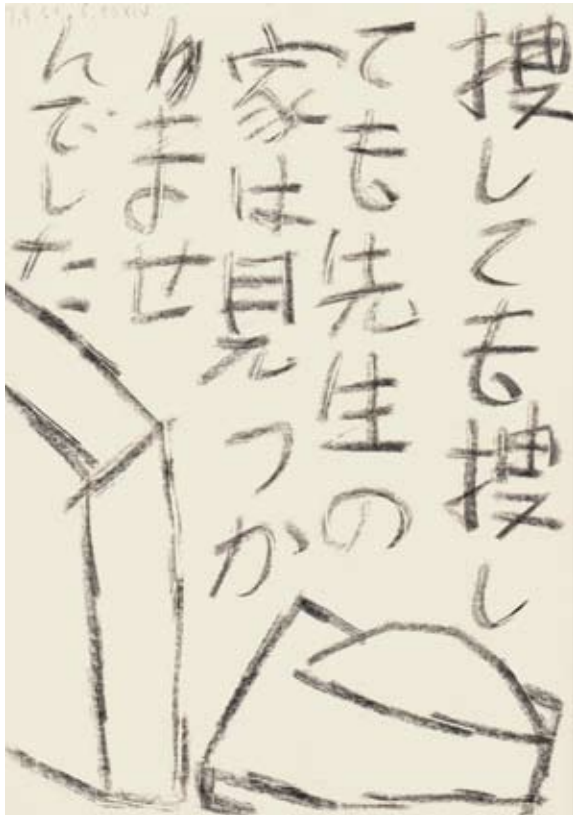 捜しても捜し
ても先生の
家は見つか
りませ
んでした